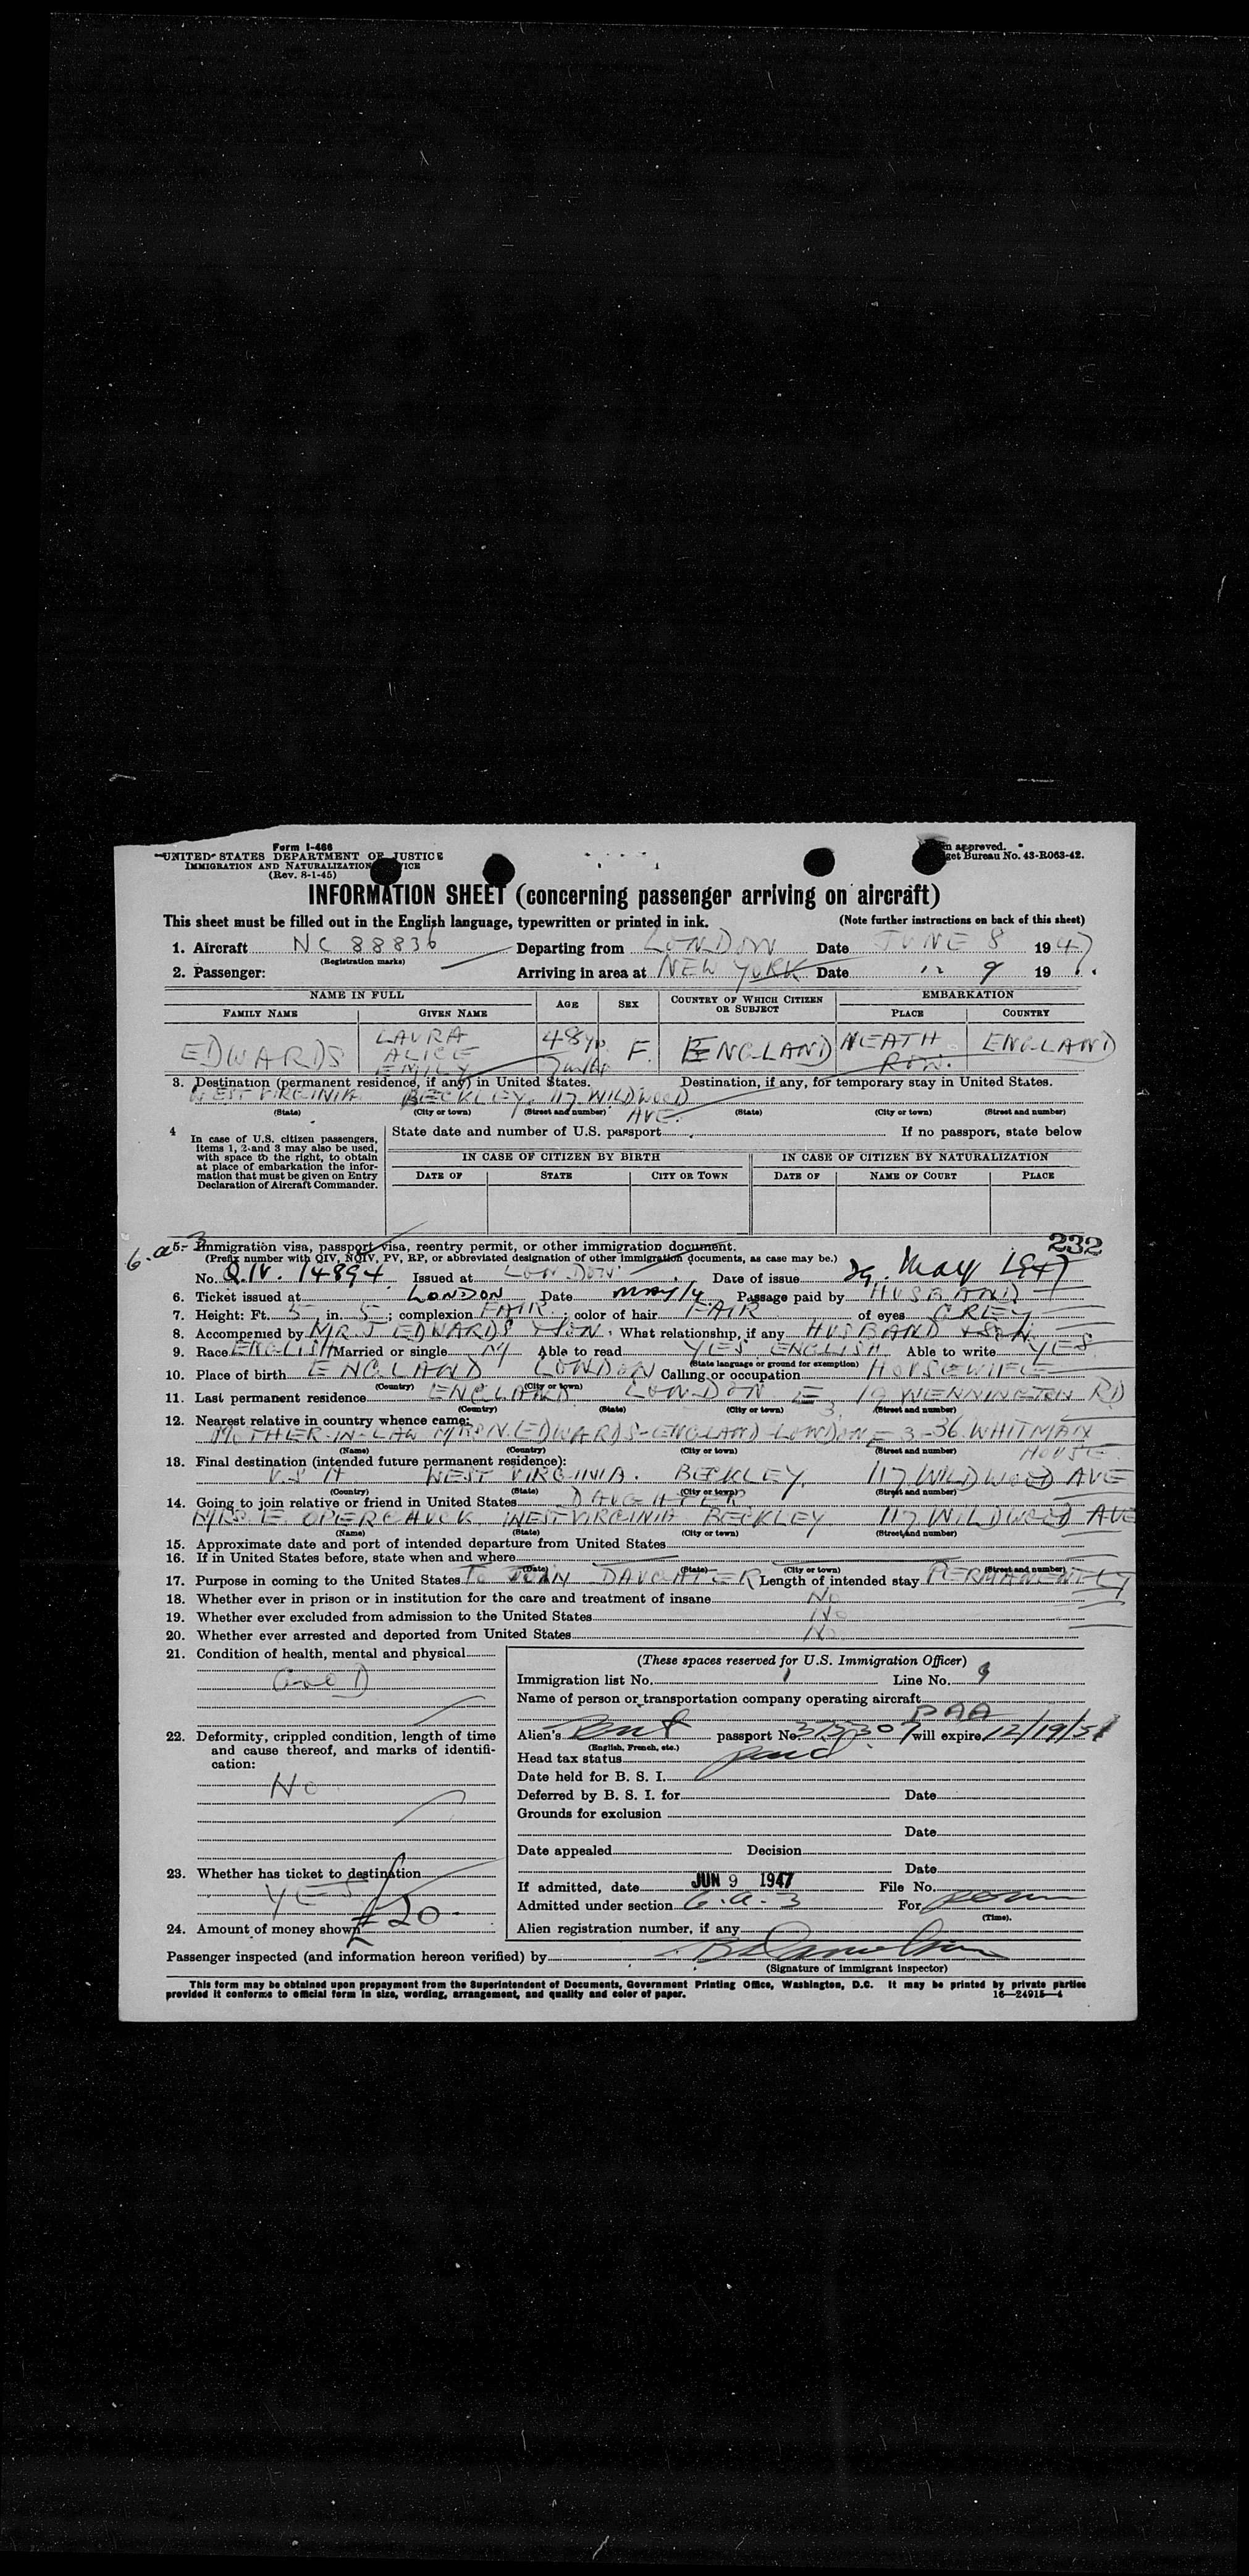 Form I-466
UNITED STATES DEPARTMENT OF JUSTICE
IMMIGRATION AND NATURALIZATION
(Rev. 8-1-45)
approved.
get Bureau No. 43-R063-42.
INFORMATION SHEET (concerning passenger arriving on aircraft)
This sheet must be filled out in the English language, typewritten or printed in ink. (Note further instructions on back of this sheet)
1. Aircraft NC 88836 Departing from LONDON Date JUNE 8 1947
(Registration marks)
2. Passenger: Arriving in area at NEW YORK Date " 9 19
NAME IN FULL AGE SEX COUNTRY OF WHICH CITIZEN OR SUBJECT EMBARKATION
FAMILY NAME GIVEN NAME PLACE COUNTRY
EDWARDS LAURA ALICE EMILY 48 F. ENGLAND HEATH ROW. ENGLAND
3. Destination (permanent residence, if any) in United States. Destination, if any, for temporary stay in United States.
WEST VIRGINIA BECKLEY. 117 WILDWOOD AVE.
(State) (City or town) (Street and number) (State) (City or town) (Street and number)
4 In case of U.S. citizen passengers, items 1, 2 and 3 may also be used, with space to the right, to obtain at place of embarkation the information that must be given on Entry Declaration of Aircraft Commander.
State date and number of U.S. passport If no passport, state below
IN CASE OF CITIZEN BY BIRTH IN CASE OF CITIZEN BY NATURALIZATION
DATE OF STATE CITY OR TOWN DATE OF NAME OF COURT PLACE
6.a 3
5. Immigration visa, passport visa, reentry permit, or other immigration document. 232
(Prefix number with QIV, NQIV, PV, RP, or abbreviated designation of other immigration documents, as case may be.)
No. QIV. 14894 Issued at LONDON Date of issue 29. May 1947
6. Ticket issued at LONDON Date MAY 14 Passage paid by HUSBAND
7. Height: Ft. 5 in. 5; complexion FAIR; color of hair FAIR of eyes GREY
8. Accompanied by MR J EDWARDS + SON. What relationship, if any HUSBAND + SON
9. Race ENGLISH Married or single M Able to read YES ENGLISH Able to write YES
(State language or ground for exemption)
10. Place of birth ENGLAND LONDON Calling or occupation HOUSEWIFE
(Country) (City or town)
11. Last permanent residence ENGLAND LONDON E 3. 19 WENNINGTON RD
(Country) (State) (City or town) (Street and number)
12. Nearest relative in country whence came:
MOTHER-IN-LAW MRS N. EDWARDS-ENGLAND-LONDON E 3-36 WHITMAN HOUSE
(Name) (Country) (City or town) (Street and number)
13. Final destination (intended future permanent residence):
U.S A WEST VIRGINIA. BECKLEY. 117 WILDWOOD AVE
(Country) (State) (City or town) (Street and number)
14. Going to join relative or friend in United States DAUGHTER
MRS E OPERCHUCK WEST VIRGINIA BECKLEY 117 WILDWOOD AVE
(Name) (State) (City or town) (Street and number)
15. Approximate date and port of intended departure from United States
16. If in United States before, state when and where
(Date) (State) (City or town) (Street and number)
17. Purpose in coming to the United States TO JOIN DAUGHTER Length of intended stay PERMANENTLY
18. Whether ever in prison or in institution for the care and treatment of insane No
19. Whether ever excluded from admission to the United States No
20. Whether ever arrested and deported from United States No
21. Condition of health, mental and physical
GOOD
22. Deformity, crippled condition, length of time and cause thereof, and marks of identification:
No
23. Whether has ticket to destination
YES
24. Amount of money shown £20
(These spaces reserved for U.S. Immigration Officer)
Immigration list No. 1 Line No. 9
Name of person or transportation company operating aircraft
PAA
Alien's Brit passport No. 375307 will expire 12/19/51
(English, French, etc.)
Head tax status paid
Date held for B. S. I.
Deferred by B. S. I. for Date
Grounds for exclusion
Date
Date appealed Decision
Date
If admitted, date JUN 9 1947 File No.
Admitted under section 6.a.3 For perm
(Time).
Alien registration number, if any
Passenger inspected (and information hereon verified) by
(Signature of immigrant inspector)
This form may be obtained upon prepayment from the Superintendent of Documents, Government Printing Office, Washington, D.C. It may be printed by private parties
provided it conforms to official form in size, wording, arrangement, and quality and color of paper. 16—24915-4